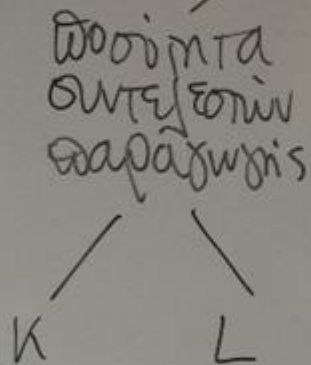 ποσότητα
συντελεστών
παραγωγής
K L